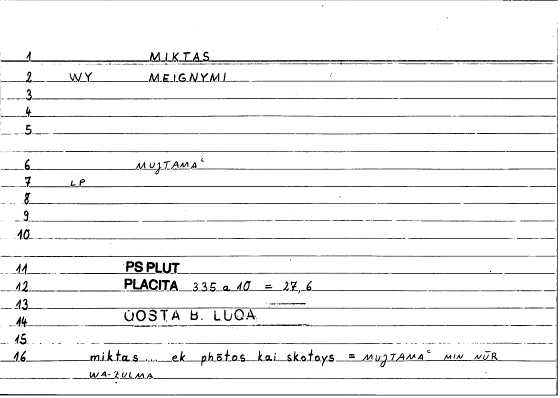 1 MIKTAS
2 WY MEIGNYMI
3
4
5
6 MUJTAMAʿ
7 LP
8
9
10
11 PS PLUT
12 PLACITA 335 a 10 = 27,6
13
14 QOSTA B. LUQA
15
16 miktas... ek phōtos kai skotoys = MUJTAMAʿ MIN NŪR
WA-ẒULMA